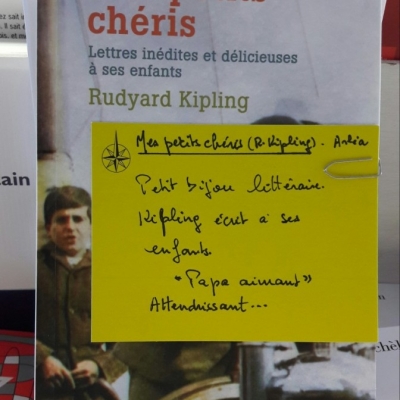 chéris
Lettres inédites et délicieuses
à ses enfants
Rudyard Kipling
Mes petits chéris (R. Kipling). Arléa
Petit bijou littéraire.
Kipling écrit à ses
enfants.
"Papa aimant"
Attendrissant...
ain